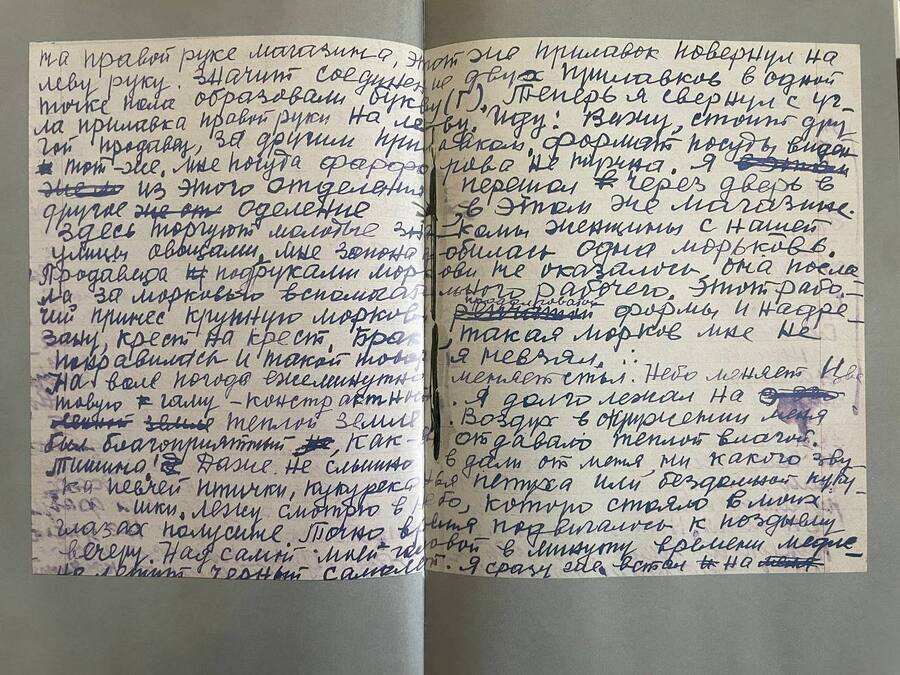 на правой руке магазина, этот же прилавок повернул на
леву руку. Значит соединение двух прилавков в одной
точке пола образовали букву (Г). Теперь я свернул с уг-
ла прилавка правой руки на леву. Иду: Вижу, стоит дру-
гой продавец, за другим прилавком. формат посуды виден
тот-же. мне посуда фарфорова не нужна. Я
из этого отделения перешол через дверь в
другое оделение в этом же магазине.
Здесь торгуют молодые знакомы женщины с нашей
улицы овощами, мне запонадобилась одна морковь.
Продавеца подруками моркови не оказалось, она посла
ла за морковью вспомагательного рабочего. Этот рабо-
чий принес крупную морков продолговатой формы и надре-
зану, крест на крест. Брак, такая морков мне не
понравилась и такой товар я невзял.
На воле погода ежеминутно меняет стил. Небо меняет цве
товую гаму - констрактност. Я долго лежал на
теплой земле. Воздух в окружении меня
был благоприятний, как- отдавало теплой влагой.
Тишина! Даже. Не слышно в дали от меня, ни какого зву
ка певчей птички, кукуреканья петуха или бездомной куку-
шки. лежу смотрю в небо, которо стояло в моих
глазах полусине. Точно время подвигалось к позднему
вечеру. Над самой мней головой в минуту времени медле-
но летит черный самолет. Я сразу же встал и на